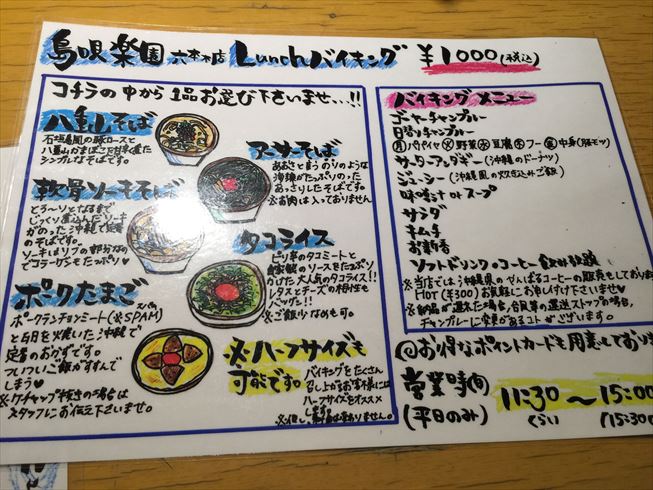 島唄楽園 六本木店 Lunchバイキング ¥1000(税込)
コチラの中から1品お選び下さいませ...!!
八重山そば
石垣島風の豚ロースと
八重山かまぼこを甘辛く煮た
シンプルなそばです。
アーサーそば
あおさと言うのりのような
海藻がたっぷりのった
あっさりしたそばです。
※お肉は入っておりません
軟骨ソーキそば
とろ〜りとなるまで
じっくり煮込んだソーキ
がのった沖縄で定番
のそばです。
ソーキはリブの部分なの
でコラーゲンもたっぷり♡
タコライス
ピリ辛のタコミートと
自家製のソースをたっぷり
かけた大人気のタコライス!!
レタスとチーズの相性も
バツグン!!
※ご飯少なめも可
ポークたまご
ポークランチョンミート(※SPAM)
スパム
と玉子を焼いた沖縄で
定番のおかずです。
ついついご飯がすすんで
しまう♡
※ケチャップ抜きの場合は
スタッフにお伝え下さいませ。
※ハーフサイズも
可能です。
バイキングをたくさん
召し上がるお客様には
ハーフサイズをオススメ
します。
※但し、料金は変わりません。
バイキングメニュー
ゴーヤーチャンプルー
日替りチャンプルー
月パパイヤ 火野菜 水豆腐 木フー 金中身(豚モツ)
サーターアンダギー(沖縄のドーナツ)
ジューシー(沖縄風の炊き込みご飯)
味噌汁orスープ
サラダ
キムチ
お新香
ソフトドリンクのコーヒー飲み放題
※当店では沖縄県のせんぱるコーヒーの販売もしており
HOT(¥300)お気軽にお申し付け下さいませ♡
※納品が遅れた場合、台風等の運送ストップの場合、
チャンプルーに変更があるコトがございます。
◎お得なポイントカードも用意しており
営業時間
(平日のみ)
11:30〜15:00
くらい
(15:30